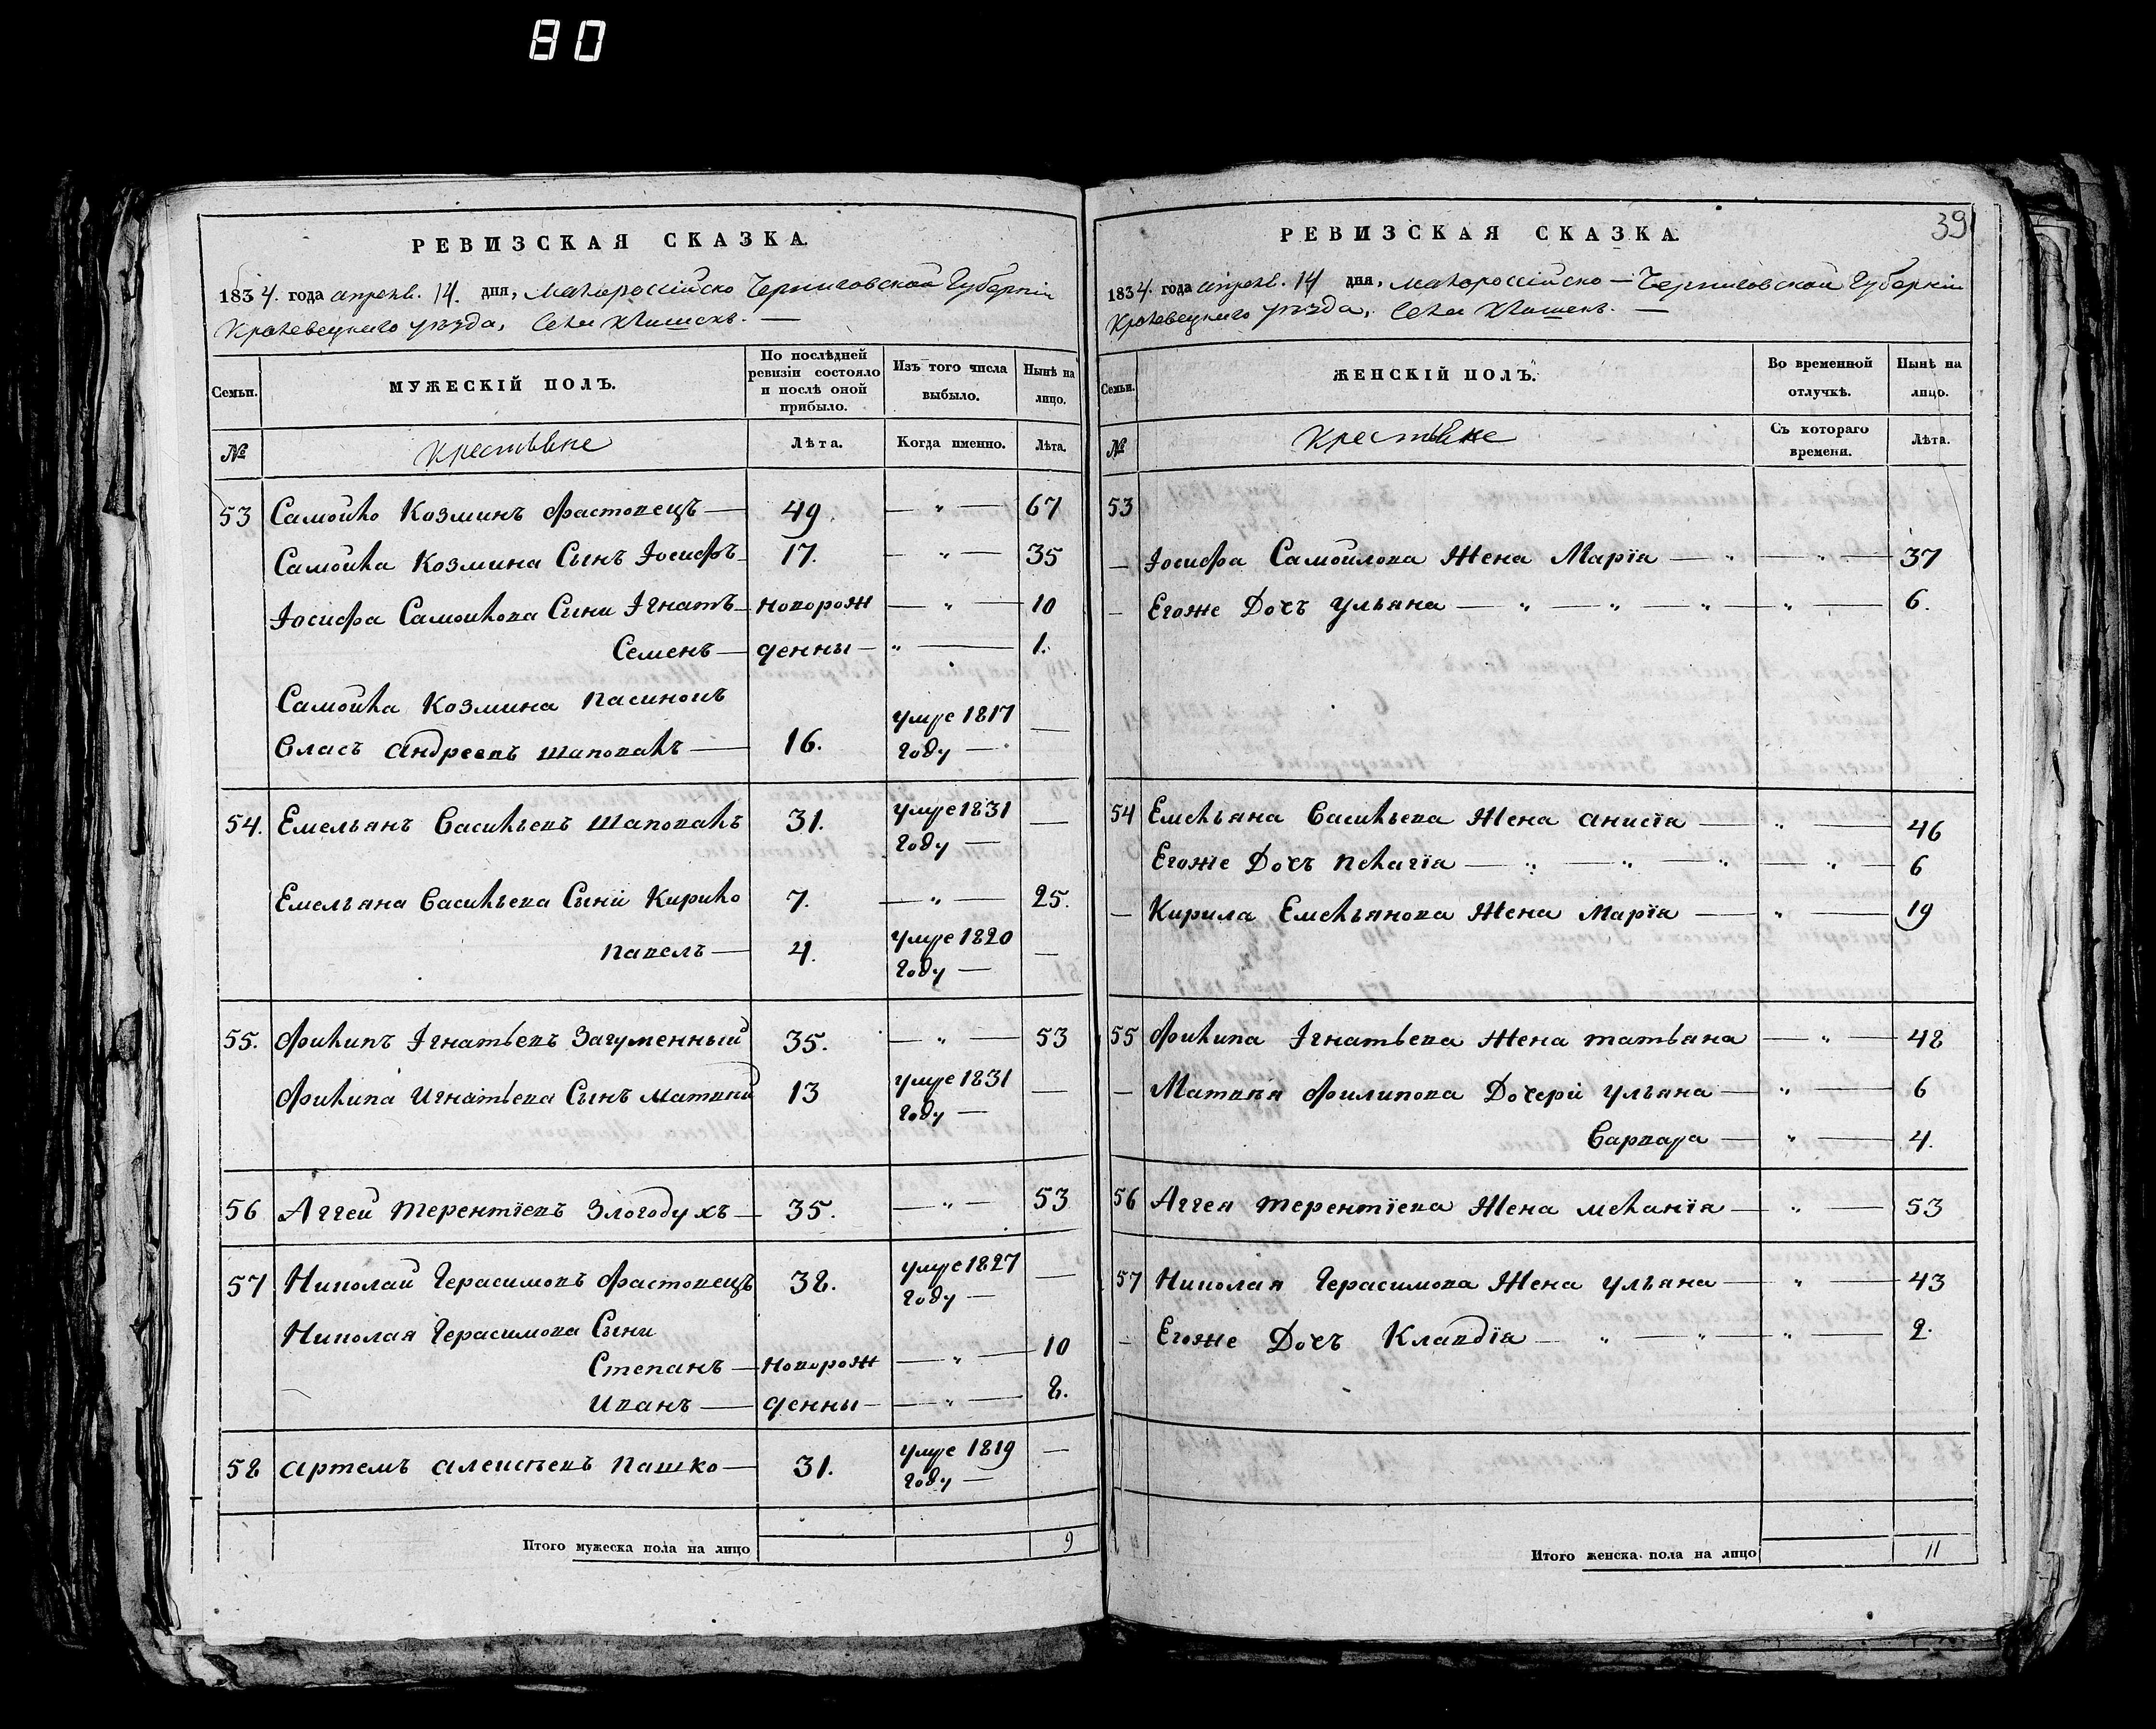 80
РЕВИЗСКАЯ СКАЗКА.
1834. года апрелѣ. 14. дня, Малороссійско Черниговской Губерніи
Кролевецкаго уѣзда, Села Клишекъ. —
Семьи.
МУЖЕСКІЙ ПОЛЪ.
По послѣдней ревизіи состояло и послѣ оной прибыло.
Изъ того числа выбыло.
Нынѣ на лицо.
№
Крестьяне
Лѣта.
Когда именно.
Лѣта.
53 Самойло Козминъ Фастовецъ — 49. — „ — 67
Самойла Козмина Сынъ Іосифъ — 17. — „ — 35
Іосифа Самойлова Сыни Ігнатъ — новорож — „ — 10
Семенъ — денны — „ — 1.
Самойла Козмина пасинокъ
Власъ Андреевъ Шаповалъ — 16. умре 1817 году — —
54. Емельянъ Васильевъ Шаповалъ 31. умре 1831 году — —
Емельяна Васильева Сыни Кирило 7. — „ — 25.
Павелъ — 4. умре 1820 году — —
55. Филипъ Ігнатьевъ Загуменный 35. — „ — 53
Филипа Игнатьева Сынъ Матвий 13 умре 1831 году — —
56 Аггей Терентїевъ Злогодухъ — 35. — „ — 53
57 Николай Герасимовъ Фастовецъ 38. умре 1827 году — —
Николая Герасимова Сыни
Степанъ — новорож — „ — 10
Иванъ — денны — — „ — 8.
58 Артемъ Алексѣевъ Пашко — 31. умре 1819 году — —
Итого мужеска пола на лицо 9
39
РЕВИЗСКАЯ СКАЗКА.
1834. года апрелѣ. 14 дня, Малороссійско — Черниговской Губерніи
Кролевецкаго уѣзда, Села Клишекъ. —
Семьи.
ЖЕНСКІЙ ПОЛЪ.
Во временной отлучкѣ.
Нынѣ на лицо.
№
Крестьяне
Съ котораго времени.
Лѣта.
53
— Іосифа Самойлова Жена Марїя — „ — „ — 37
— Егоже Дочъ Ульяна — „ — „ — „ — „ — 6.
54 Емельяна Васильева Жена Анисїя — „ — 46
Егоже Дочъ Пелагїя — „ — „ — „ — „ — 6
— Кирила Емельянова Жена Марїя — „ — 19
55 Филипа Ігнатьева Жена Татьяна — „ — 48
— Матвѣя Филипова Дочери Ульяна — „ — 6
Варвара — „ — 4.
56 Аггея Терентїева Жена Меланїя — „ — 53
57 Николая Герасимова Жена Ульяна — „ — 43
— Егоже Дочъ Клавдїя — „ — „ — „ — 2.
Итого женска пола на лицо 11